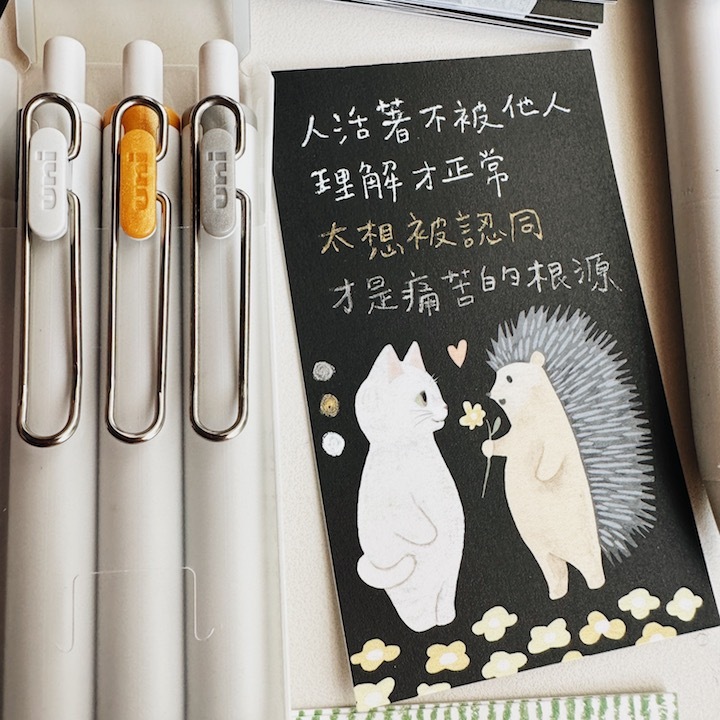 人活著不被他人
理解才正常
太想被認同
才是痛苦的根源
uni
uni
uni